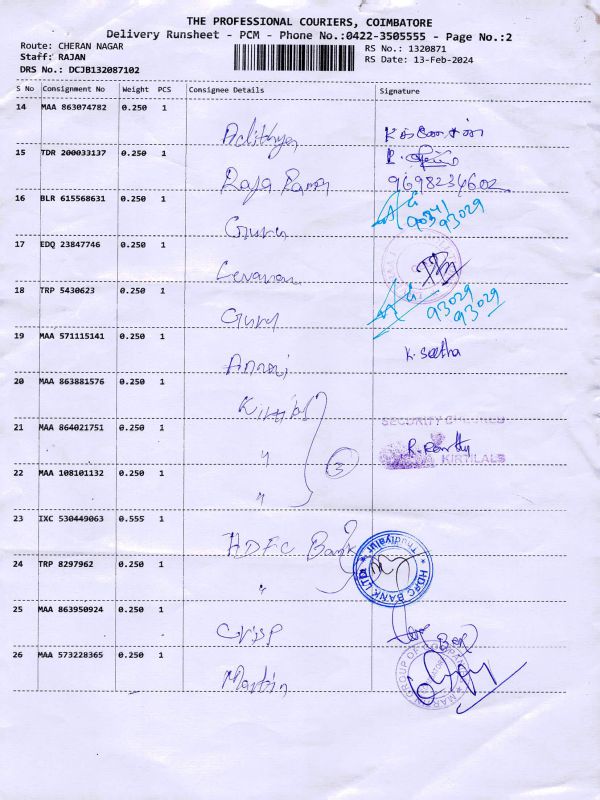 THE PROFESSIONAL COURIERS, COIMBATORE
Delivery Runsheet - PCM - Phone No.:0422-3505555 - Page No.:2
Route: CHERAN NAGAR
RS No.: 1320871
Staff: RAJAN
RS Date: 13-Feb-2024
DRS No.: DCJB132087102
S No Consignment No Weight PCS Consignee Details Signature
14 MAA 863074782 0.250 1
Adithya
15 TDR 200033137 0.250 1
Raja Raman 9698234602
16 BLR 615568631 0.250 1
Guru 93029
17 EDQ 23847746 0.250 1
18 TRP 5430623 0.250 1
Guru 93029 93029
19 MAA 571115141 0.250 1
Annai K. Seetha
20 MAA 863881576 0.250 1
Kirtilal
21 MAA 864021751 0.250 1
" 3 SECURITY CHECKED
KIRTILALS
22 MAA 108101132 0.250 1
"
23 IXC 530449063 0.555 1
HDFC Bank
24 TRP 8297962 0.250 1
" HDFC BANK LTD Thudiyalur
25 MAA 863950924 0.250 1
Crisp
26 MAA 573228365 0.250 1
Martin